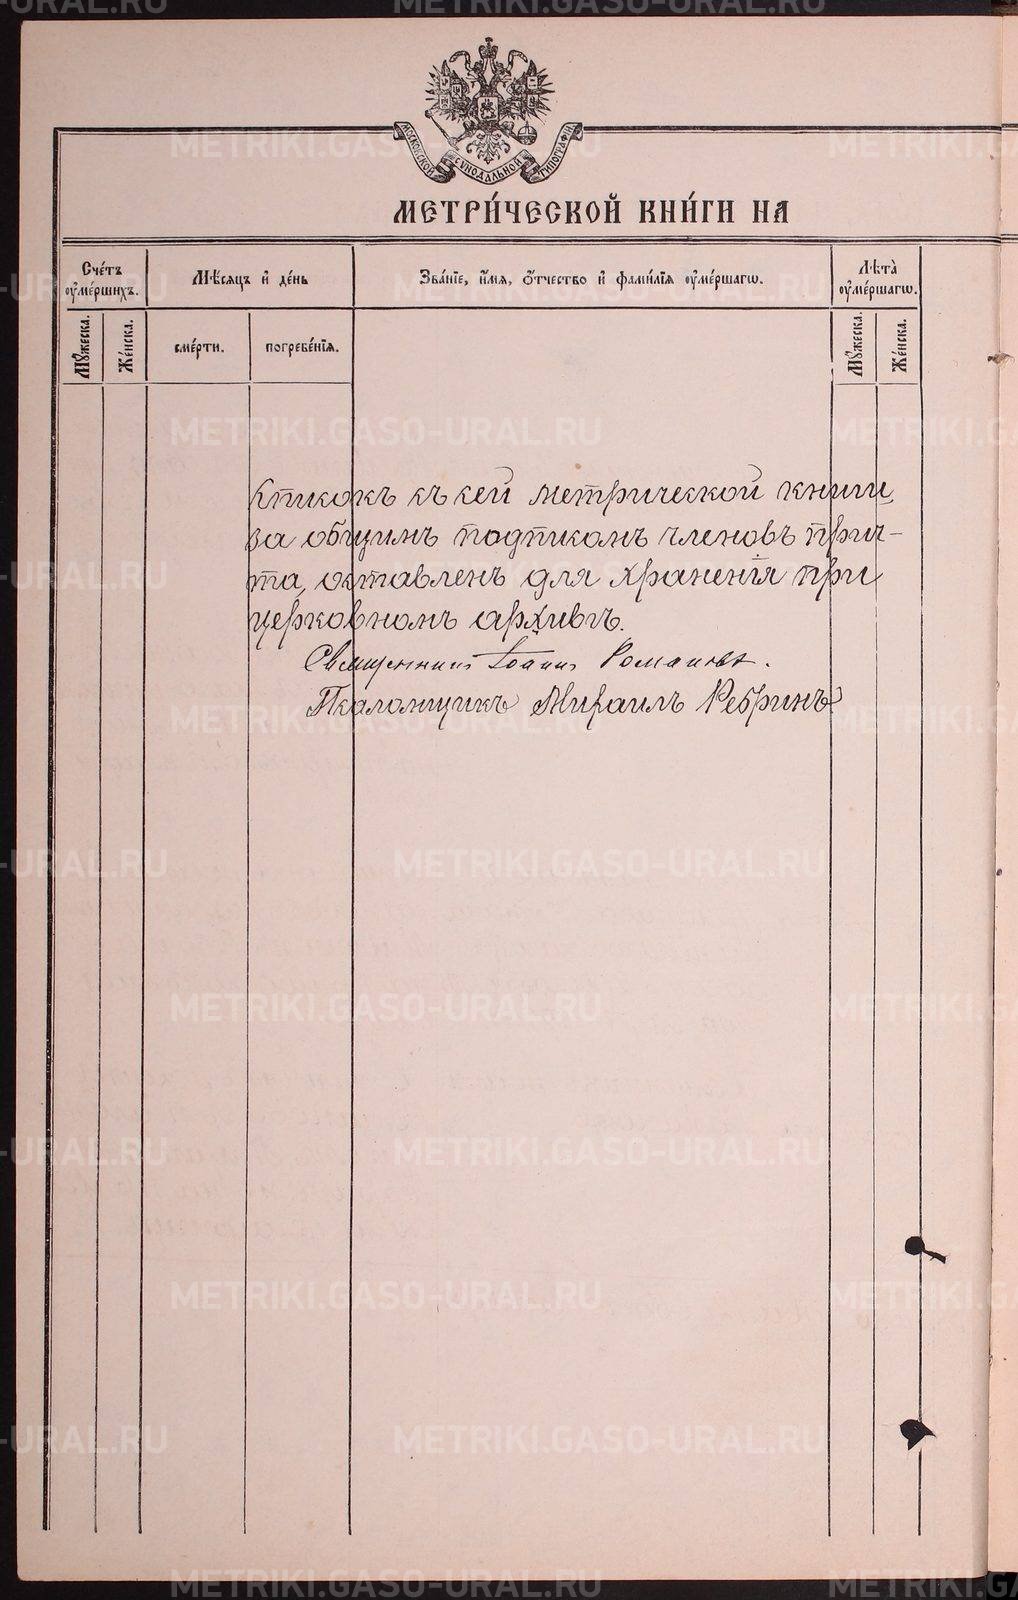 METRIKI.GASO-URAL.RU
МОСКОВСКОЙ СѴНОДАЛЬНОЙ ТИПОГРАФІИ
МЕТРИ́ЧЕСКОЙ КНИ́ГИ НА
Сче́тъ ᲂу҆ме́ршихъ.
Мѣ́сяцъ и҆ де́нь
Зва́нїе, и҆́мя, ѻ҆́тчество и҆ фами́лїя ᲂу҆ме́ршагѡ.
Лѣта̀ ᲂу҆ме́ршагѡ.
Мꙋ́жеска.
Же́нска.
сме́рти.
погребе́нїя.
Мꙋ́жеска.
Же́нска.
Списокъ къ сей метрической книги,
за общимъ подписомъ членовъ прич-
та, оставленъ для храненія при
церковномъ архивѣ.
Священникъ Іоаннъ Романовъ.
Псаломщикъ Михаилъ Ребринъ